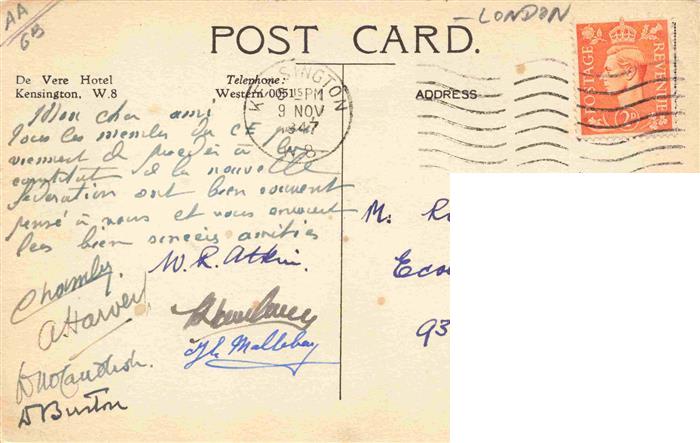 AA
GB
- LONDON
POST CARD.
De Vere Hotel
Kensington, W.8
Telephone:
Western 0051
KENSINGTON
15 PM
9 NOV
1947
W.8
ADDRESS
POSTAGE
REVENUE
2D
Mon cher ami
Tous les membres du CE
viennent de procéder à la
constitut de la nouvelle
federation ont bien souvent
pensé à vous et vous envoient
les bien sincères amitiés
W. R. Atkin.
Chambly.
A Harvey
Th Mallebay
D McCandlish.
D Burton
M. R
Eco
93